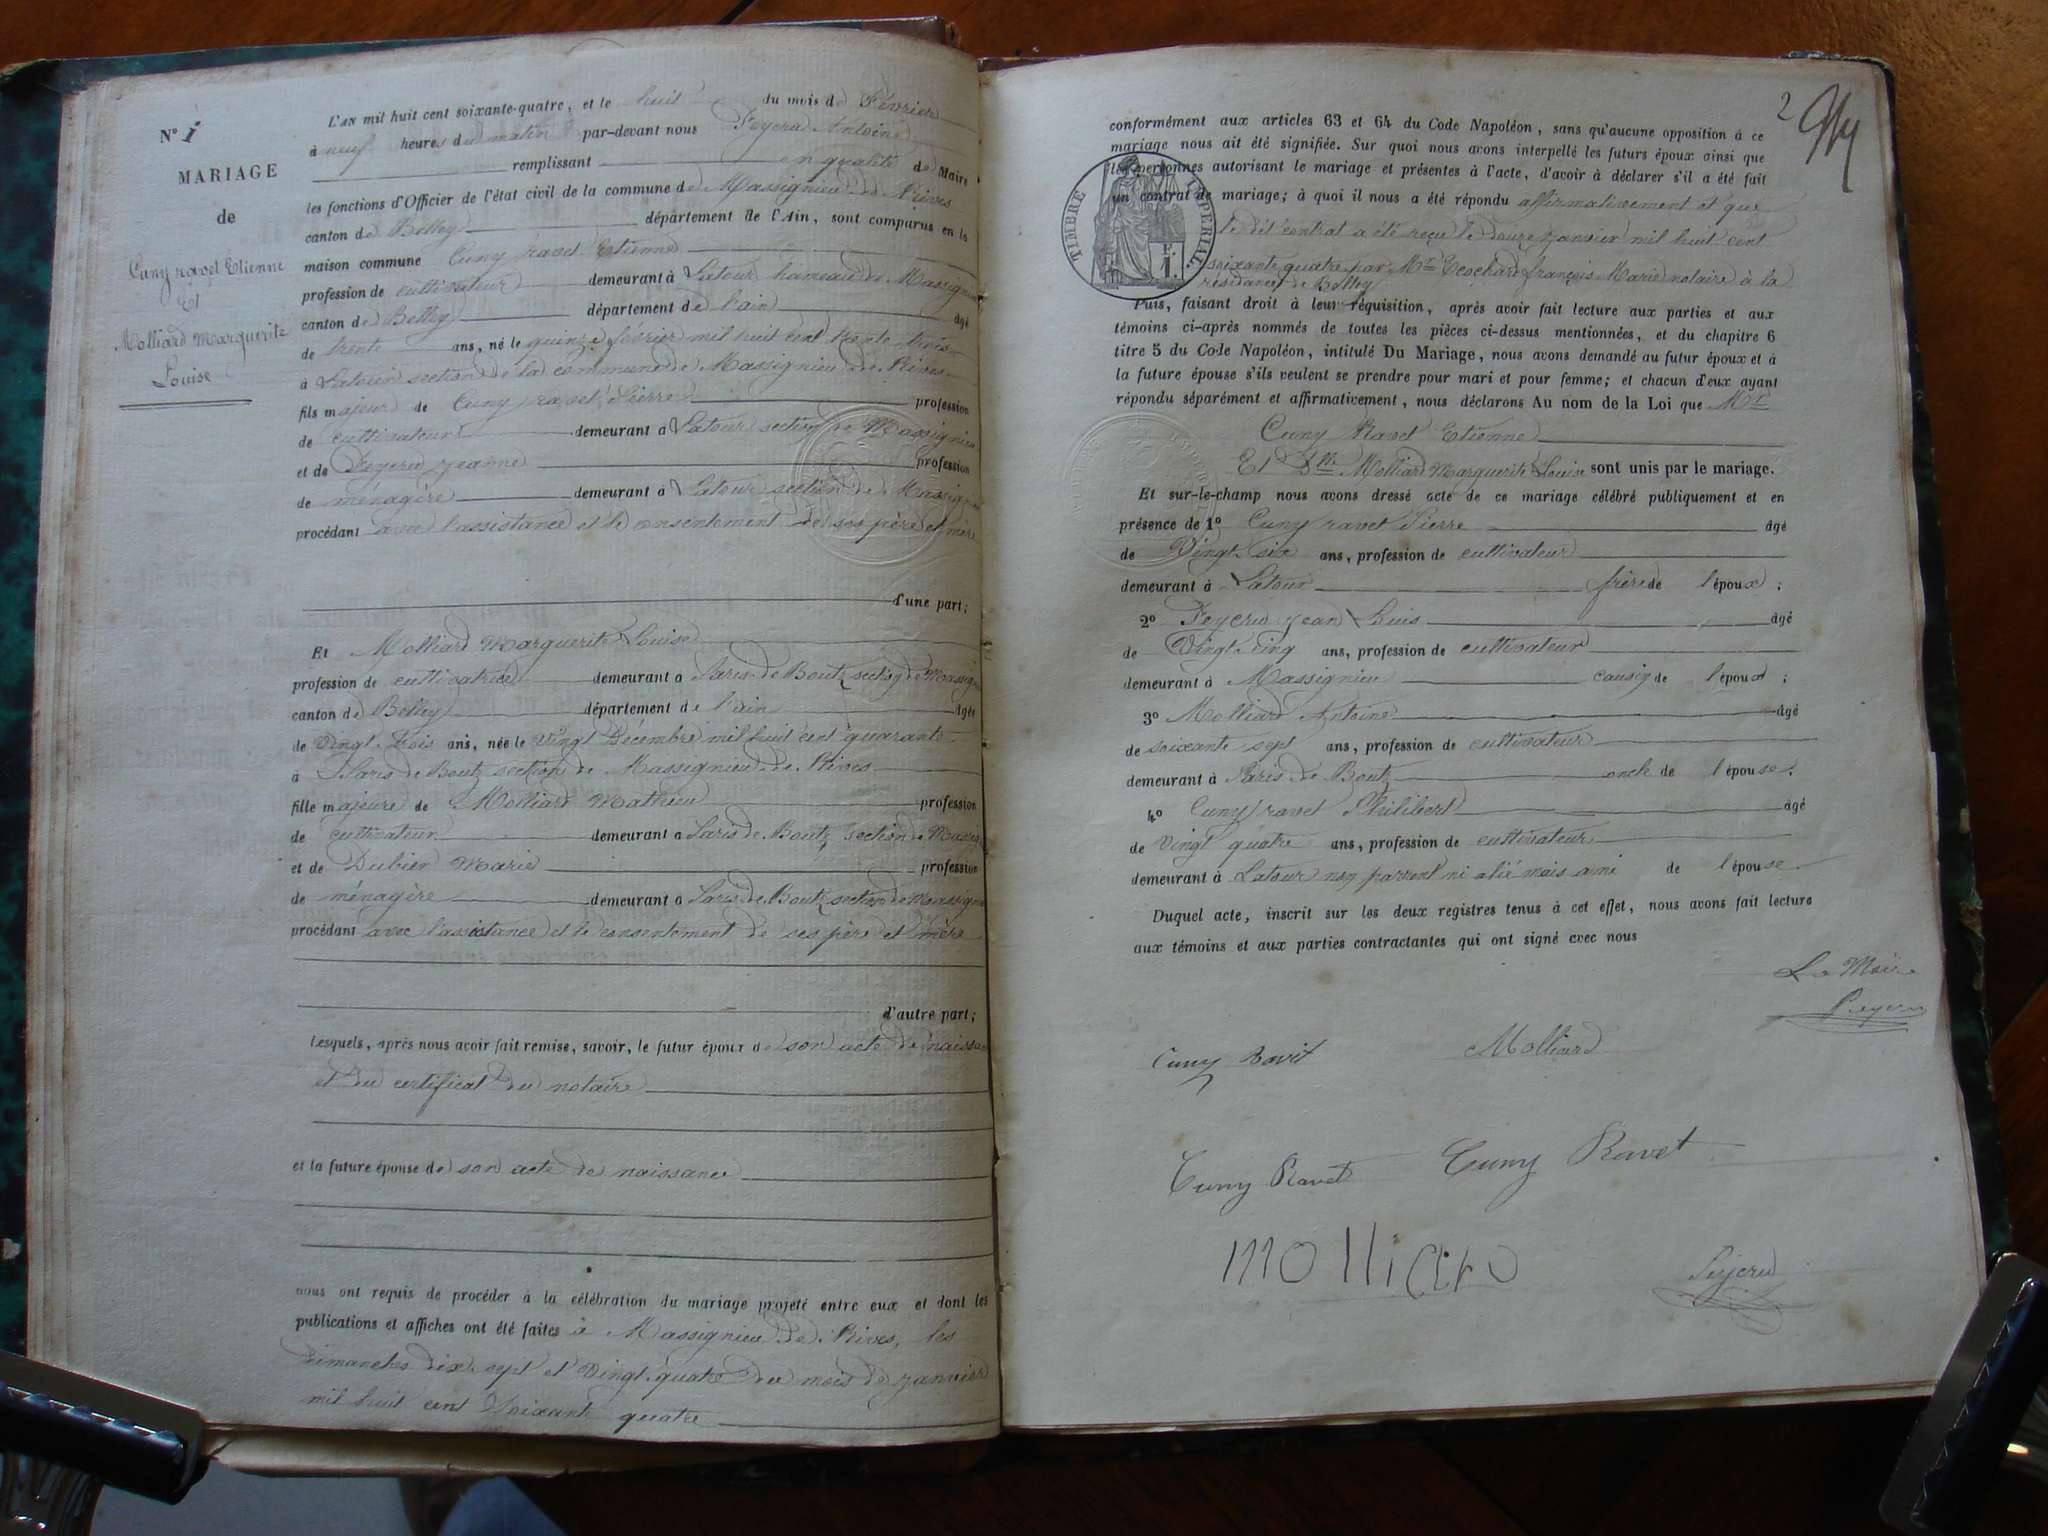 N° 1
MARIAGE
de
Cuny ravet Etienne
Et
Molliard Marguerite
Louise
L'AN mil huit cent soixante-quatre, et le huit du mois de Février
à neuf heures du matin par-devant nous Peycru Antoine
remplissant en qualité de Maire
les fonctions d'Officier de l'état civil de la commune de Massignieu de Rives
canton de Belley département de l'Ain, sont comparus en la
maison commune Cuny ravet Etienne
profession de cultivateur demeurant à Latour hameau de Massignieu
canton de Belley département de l'ain âgé
de trente ans, né le quinze février mil huit cent trente trois
à Latour section de la commune de Massignieu de Rives
fils majeur de Cuny ravet Pierre profession
de cultivateur demeurant à Latour section de Massignieu
et de Peycru jeanne profession
de ménagère demeurant à Latour section de Massignieu
procédant avec l'assistance et le consentement de ses père et mère
d'une part;
Et Molliard Marguerite Louise
profession de cultivatrice demeurant à Paris de Boutz section de Massign
canton de Belley département de l'ain âgée
de Vingt-trois ans, née le Vingt Décembre mil huit cent quarante
à Paris de Boutz section de Massignieu de Rives
fille majeure de Molliard Mathieu profession
de cultivateur demeurant à Paris de Boutz section de Massig
et de Dubier Marie profession
de ménagère demeurant à Paris de Boutz section de Massign
procédant avec l'assistance et le consentement de ses père et mère
d'autre part;
Lesquels, après nous avoir fait remise, savoir, le futur époux de son acte de naissan
et du certificat du notaire
et la future épouse de son acte de naissance
nous ont requis de procéder à la célébration du mariage projeté entre eux et dont les
publications et affiches ont été faites à Massignieu de Rives, les
Dimanches dix sept et vingt-quatre du mois de janvier
mil huit cent soixante quatre
2
conformément aux articles 63 et 64 du Code Napoléon, sans qu'aucune opposition à ce
mariage nous ait été signifiée. Sur quoi nous avons interpellé les futurs époux ainsi que
les personnes autorisant le mariage et présentes à l'acte, d'avoir à déclarer s'il a été fait
un contrat de mariage; à quoi il nous a été répondu affirmativement et que
le dit contrat a été reçu le douze janvier mil huit cent
soixante quatre par Mr françois Marie notaire à la
résidence de Belley
TIMBRE IMPÉRIAL
F.
1.
Puis, faisant droit à leur réquisition, après avoir fait lecture aux parties et aux
témoins ci-après nommés de toutes les pièces ci-dessus mentionnées, et du chapitre 6
titre 5 du Code Napoléon, intitulé Du Mariage, nous avons demandé au futur époux et à
la future épouse s'ils veulent se prendre pour mari et pour femme; et chacun d'eux ayant
répondu séparément et affirmativement, nous déclarons Au nom de la Loi que Mr
Cuny Ravet Etienne
Et Dlle Molliard Marguerite Louise sont unis par le mariage.
Et sur-le-champ nous avons dressé acte de ce mariage célébré publiquement et en
présence de 1° Cuny ravet Pierre âgé
de Vingt-six ans, profession de cultivateur
demeurant à Latour frère de l'époux;
2° Peycru jean Louis âgé
de Vingt-cinq ans, profession de cultivateur
demeurant à Massignieu cousin de l'époux;
3° Molliard Antoine âgé
de soixante sept ans, profession de cultivateur
demeurant à Paris de Boutz oncle de l'épouse;
4° Cuny ravet Philibert âgé
de Vingt quatre ans, profession de cultivateur
demeurant à Latour non parrent ni alié mais ami de l'épouse
Duquel acte, inscrit sur les deux registres tenus à cet effet, nous avons fait lecture
aux témoins et aux parties contractantes qui ont signé avec nous
Le Maire
Peycru
Cuny Ravet Molliard
Cuny Ravet Cuny Ravet
molliard
Peycru